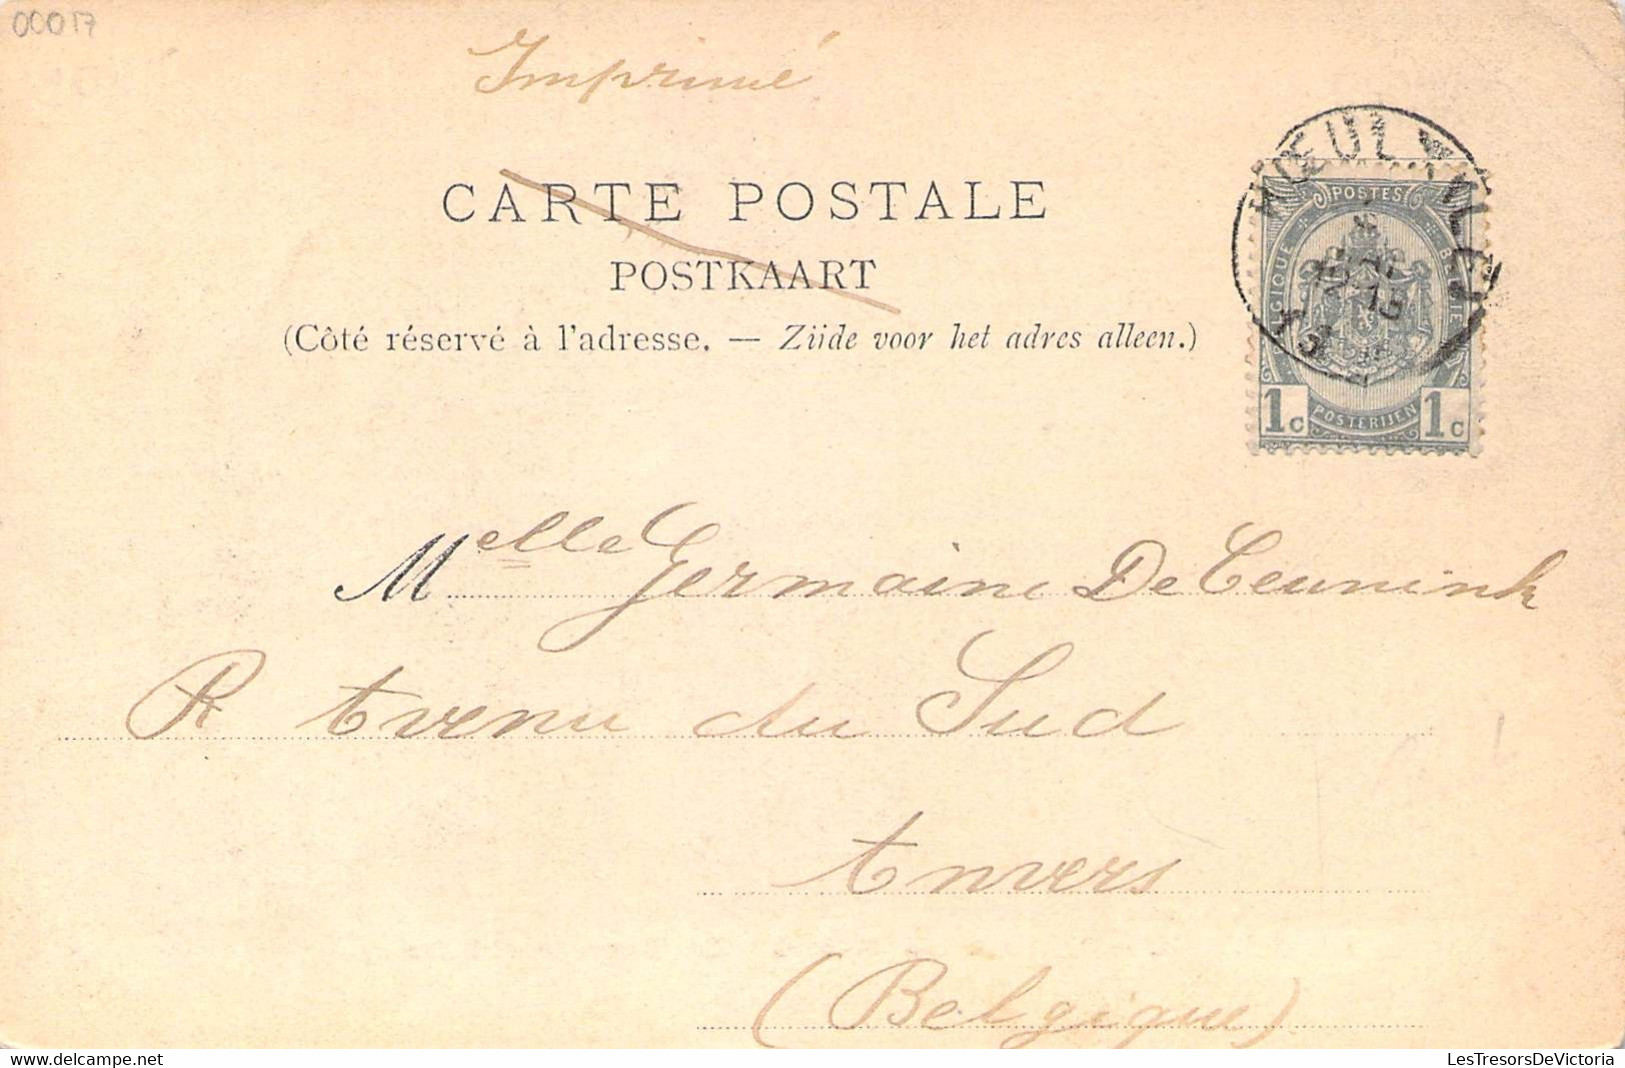 00017
Imprimé
CARTE POSTALE
POSTKAART
(Côté réservé à l'adresse. — Zijde voor het adres alleen.)
POSTES
BELGIQUE BELGIE
1c POSTERIJEN 1c
Melle Germaine De Ceunink
R Avenu du Sud
Anvers
(Belgique)
LesTresorsDeVictoria